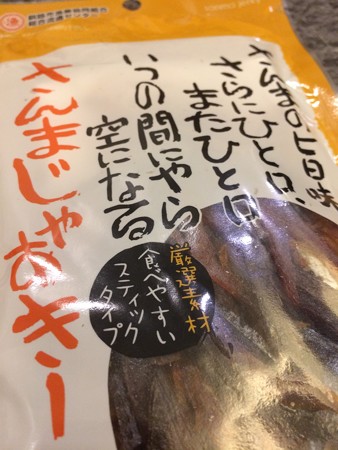 さんまの旨味
さらにひと口、
またひと口
いつの間にやら
空になる
さんまじゃあきー
厳選素材
食べやすい
スティック
タイプ